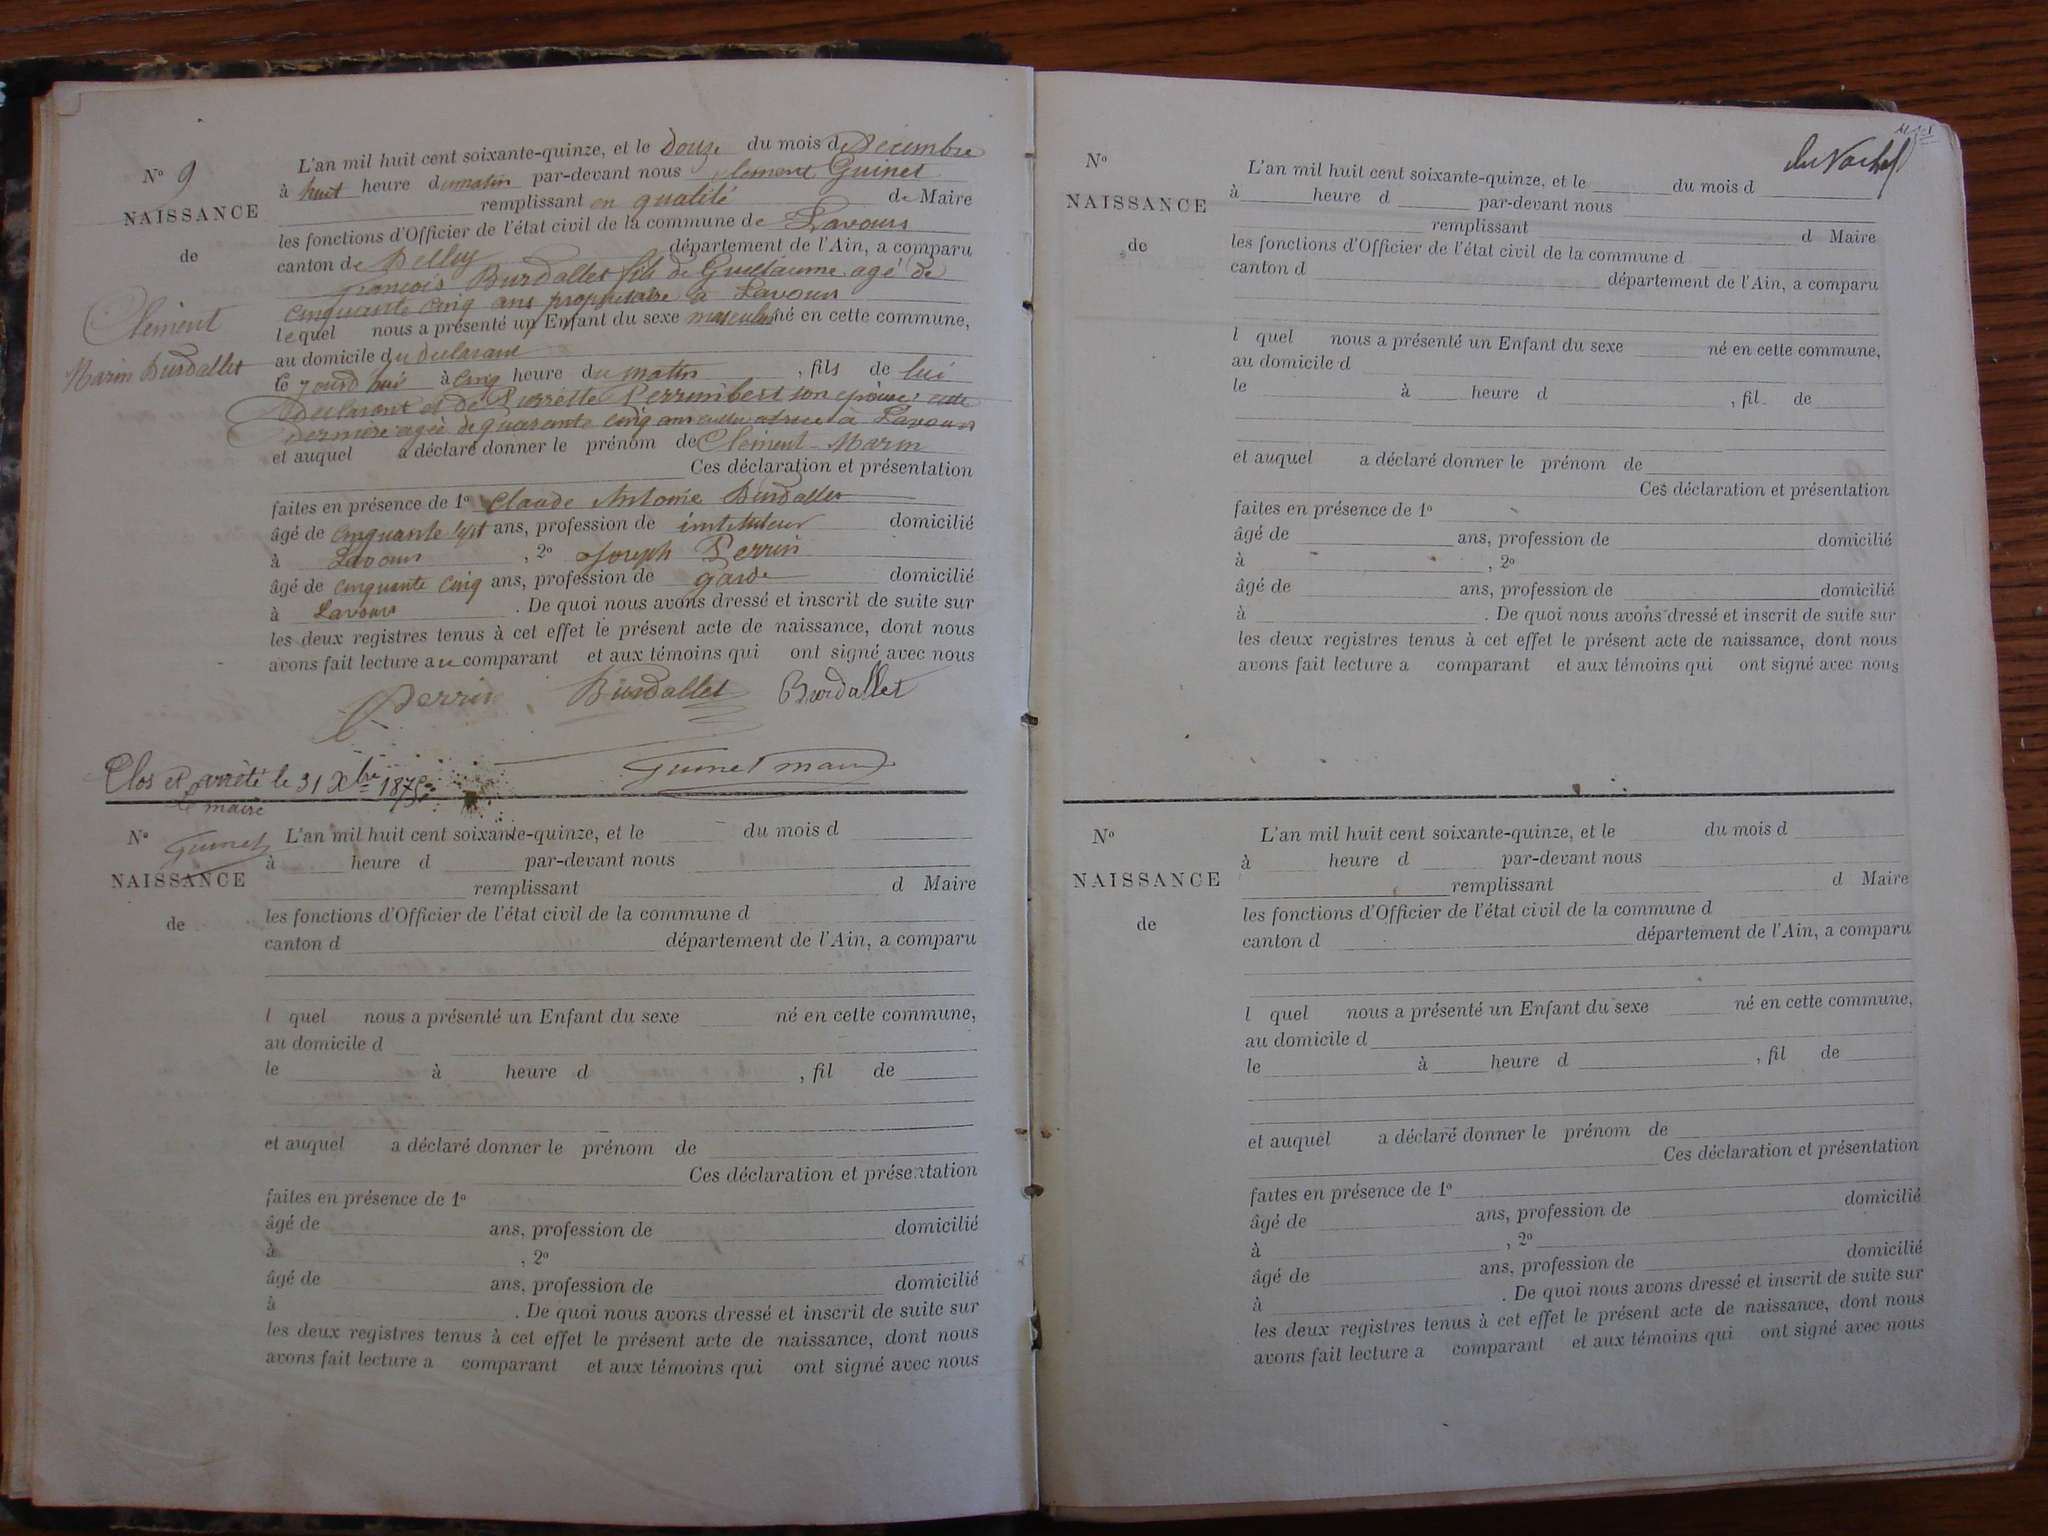 N° 9
NAISSANCE
de
Clément
Marin Burdallet
L'an mil huit cent soixante-quinze, et le Douze du mois de Décembre
à huit heure du matin par-devant nous Clément Guinet
remplissant en qualité de Maire
les fonctions d'Officier de l'état civil de la commune de Lavours
canton de Belley département de l'Ain, a comparu
François Burdallet fils de Guillaume agé de
cinquante cinq ans propriétaire à Lavours
lequel nous a présenté un Enfant du sexe masculin né en cette commune,
au domicile du déclarant
le jourd'hui à cinq heure du matin , fils de lui
déclarant et de Pierrette Perrimbert son épouse cette
dernière agée de quarante cinq ans cultivatrice à Lavours
et auquel a déclaré donner le prénom de Clément Marin
Ces déclaration et présentation
faites en présence de 1° Claude Antoine Burdallet
âgé de cinquante sept ans, profession de instituteur domicilié
à Lavours , 2° Joseph Perrin
âgé de cinquante cinq ans, profession de garde domicilié
à Lavours . De quoi nous avons dressé et inscrit de suite sur
les deux registres tenus à cet effet le présent acte de naissance, dont nous
avons fait lecture au comparant et aux témoins qui ont signé avec nous
Perrin Burdallet Burdallet
Guinet maire
Clos et arrêté le 31 Xbre 1875
Le maire
Guinet
N°
NAISSANCE
de
L'an mil huit cent soixante-quinze, et le du mois d
à heure d par-devant nous
remplissant d Maire
les fonctions d'Officier de l'état civil de la commune d
canton d département de l'Ain, a comparu
l quel nous a présenté un Enfant du sexe né en cette commune,
au domicile d
le à heure d , fil de
et auquel a déclaré donner le prénom de
Ces déclaration et présentation
faites en présence de 1°
âgé de ans, profession de domicilié
à , 2°
âgé de ans, profession de domicilié
à . De quoi nous avons dressé et inscrit de suite sur
les deux registres tenus à cet effet le présent acte de naissance, dont nous
avons fait lecture a comparant et aux témoins qui ont signé avec nous
N°
NAISSANCE
de
L'an mil huit cent soixante-quinze, et le du mois d
à heure d par-devant nous
remplissant d Maire
les fonctions d'Officier de l'état civil de la commune d
canton d département de l'Ain, a comparu
l quel nous a présenté un Enfant du sexe né en cette commune,
au domicile d
le à heure d , fil de
et auquel a déclaré donner le prénom de
Ces déclaration et présentation
faites en présence de 1°
âgé de ans, profession de domicilié
à , 2°
âgé de ans, profession de domicilié
à . De quoi nous avons dressé et inscrit de suite sur
les deux registres tenus à cet effet le présent acte de naissance, dont nous
avons fait lecture a comparant et aux témoins qui ont signé avec nous
N°
NAISSANCE
de
L'an mil huit cent soixante-quinze, et le du mois d
à heure d par-devant nous
remplissant d Maire
les fonctions d'Officier de l'état civil de la commune d
canton d département de l'Ain, a comparu
l quel nous a présenté un Enfant du sexe né en cette commune,
au domicile d
le à heure d , fil de
et auquel a déclaré donner le prénom de
Ces déclaration et présentation
faites en présence de 1°
âgé de ans, profession de domicilié
à , 2°
âgé de ans, profession de domicilié
à . De quoi nous avons dressé et inscrit de suite sur
les deux registres tenus à cet effet le présent acte de naissance, dont nous
avons fait lecture a comparant et aux témoins qui ont signé avec nous